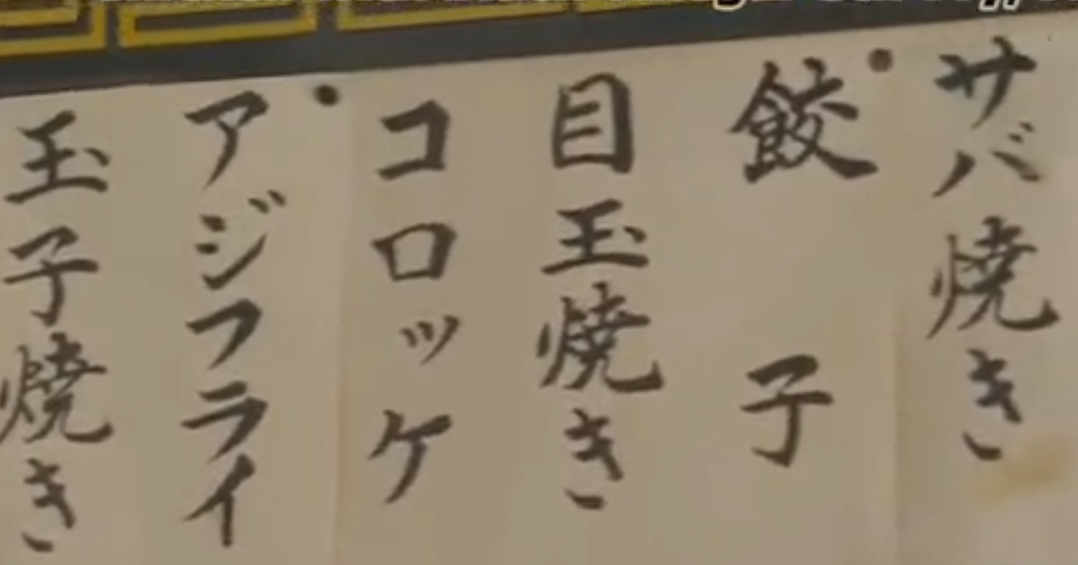 サバ焼き
餃子
目玉焼き
コロッケ
アジフライ
玉子焼き